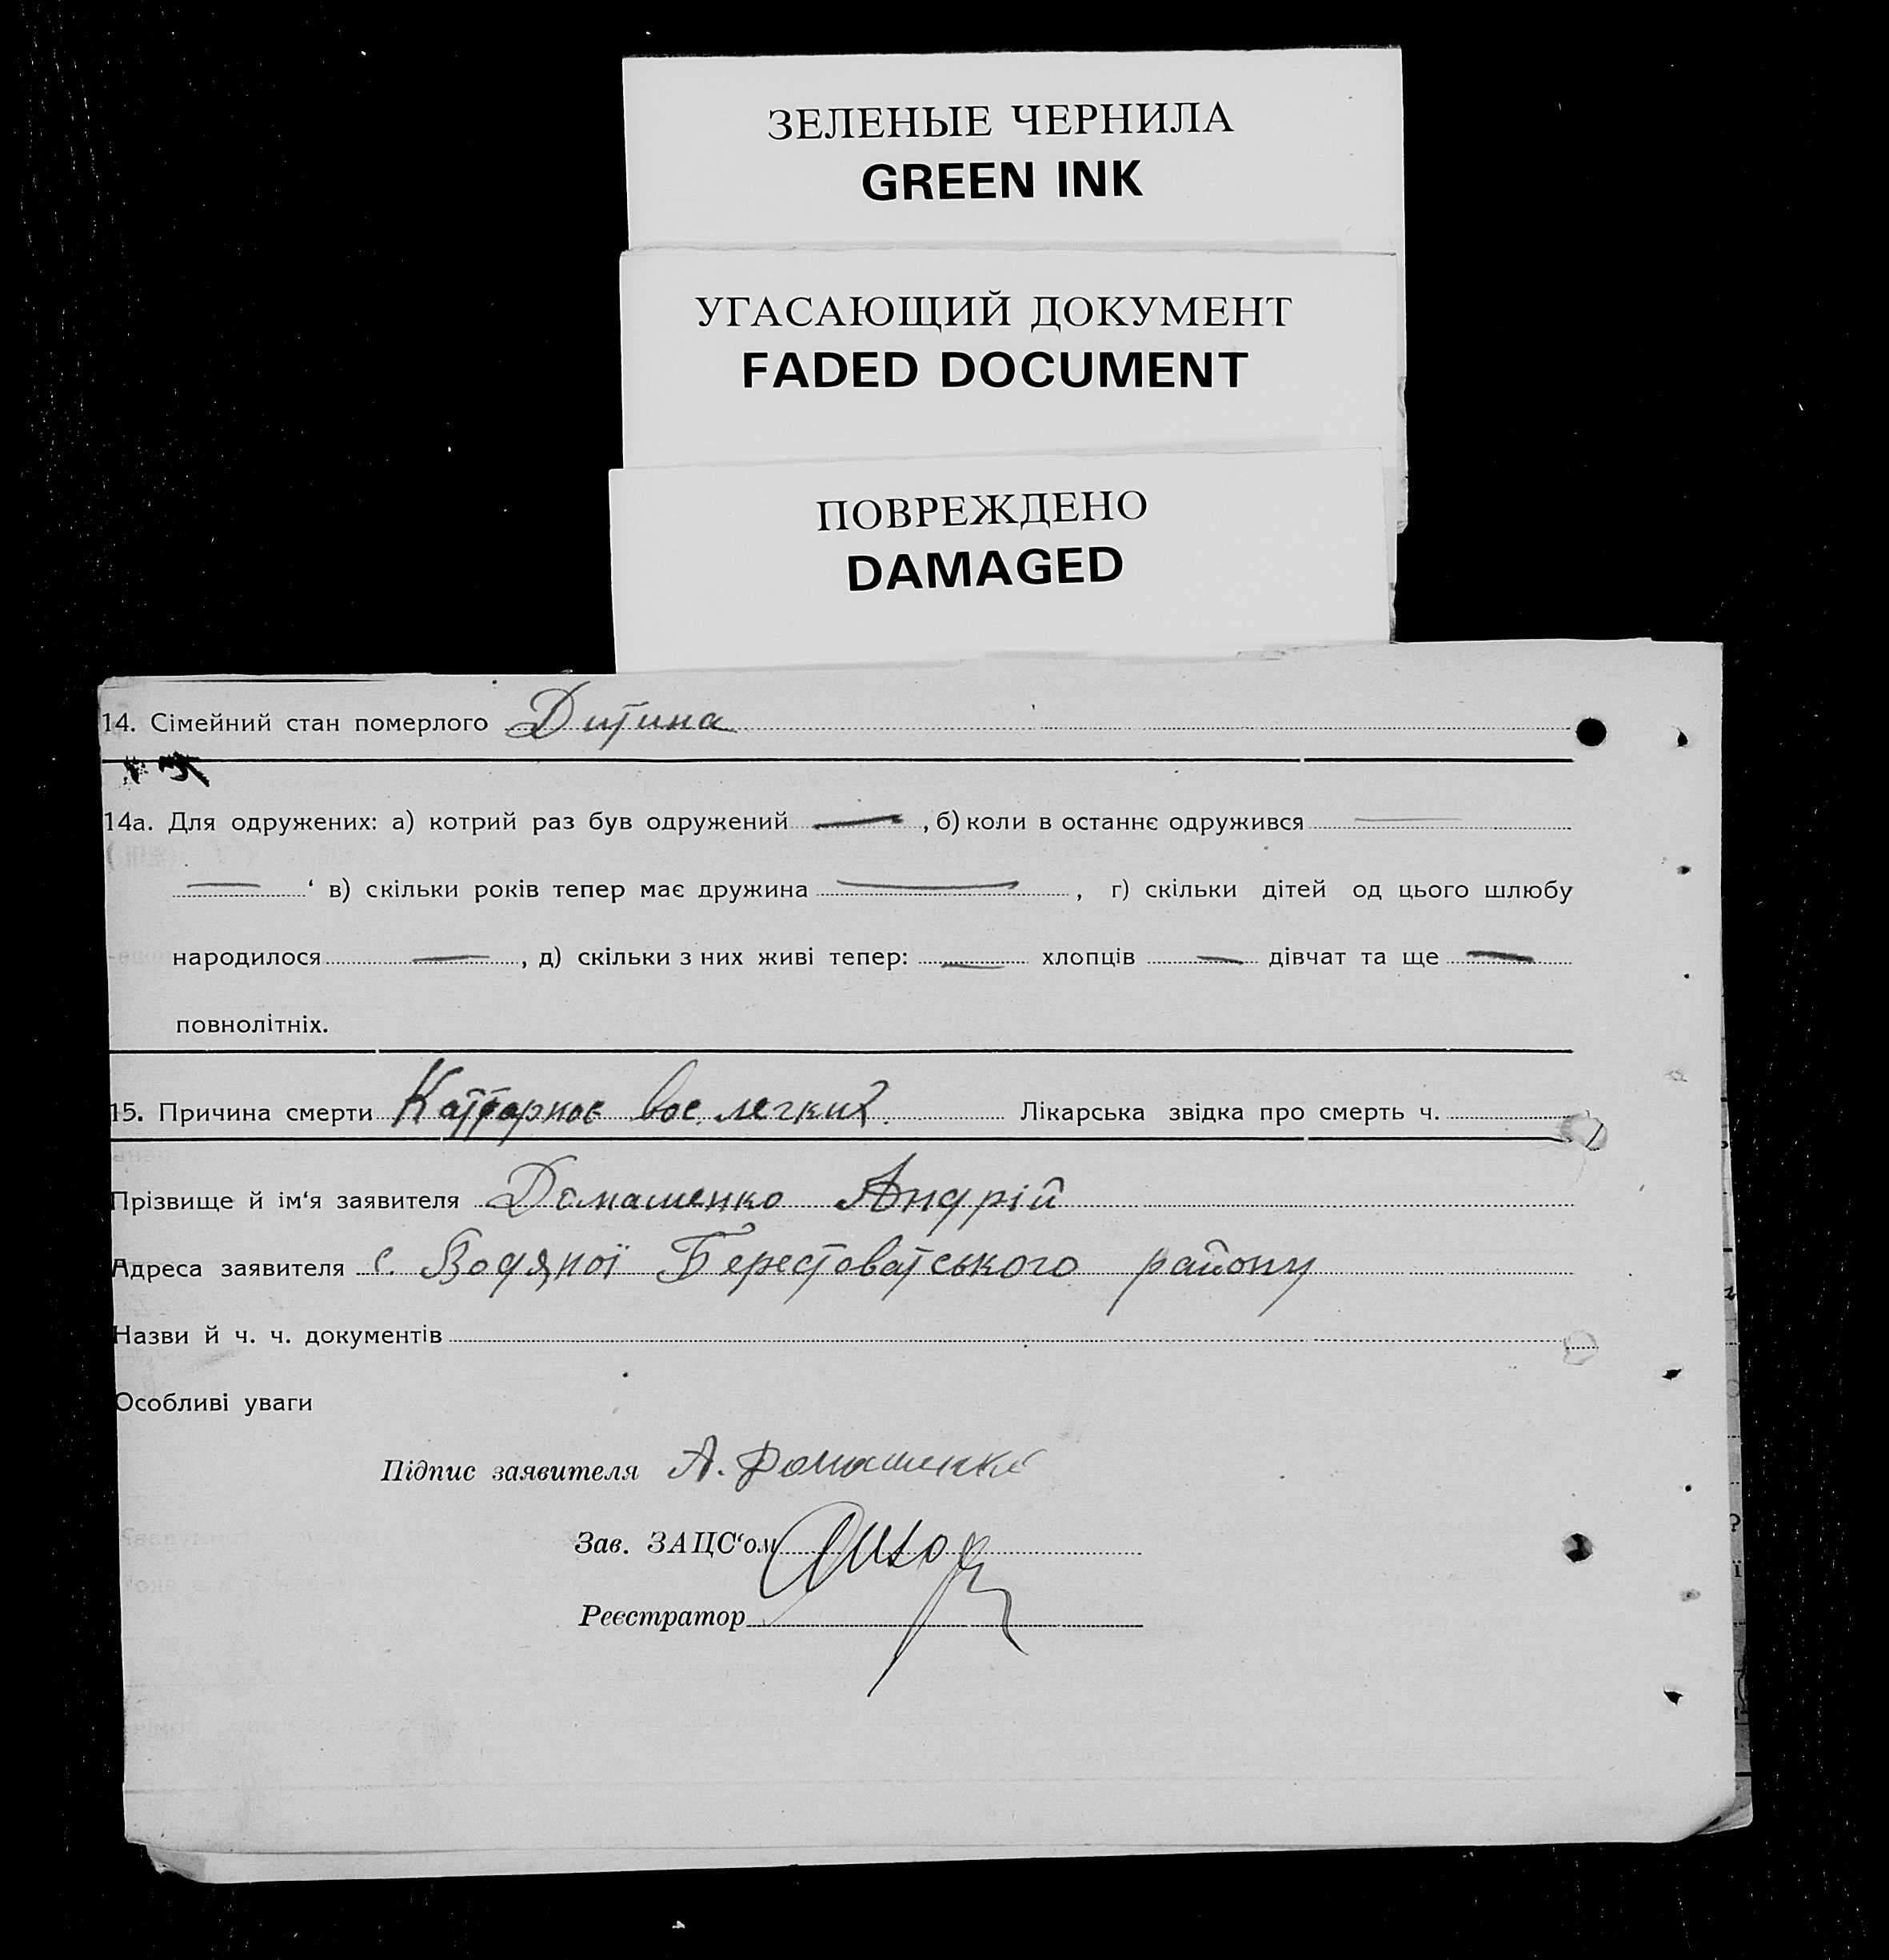 ЗЕЛЕНЫЕ ЧЕРНИЛА
GREEN INK
УГАСАЮЩИЙ ДОКУМЕНТ
FADED DOCUMENT
ПОВРЕЖДЕНО
DAMAGED
14. Сімейний стан померлого Дитина
14а. Для одружених: а) котрий раз був одружений —, б) коли в останнє одружився —
— ‘ в) скільки років тепер має дружина —, г) скільки дітей од цього шлюбу
народилося —, д) скільки з них живі тепер: — хлопців — дівчат та ще —
повнолітніх.
15. Причина смерти Каттарное вос. легких. Лікарська звідка про смерть ч.
Прізвище й ім‘я заявителя Домашенко Андрій
Адреса заявителя с. Водяної Берестоватського району
Назви й ч. ч. документів
Особливі уваги
Підпис заявителя А. Домашенко
Зав. ЗАЦС‘ом
Реєстратор